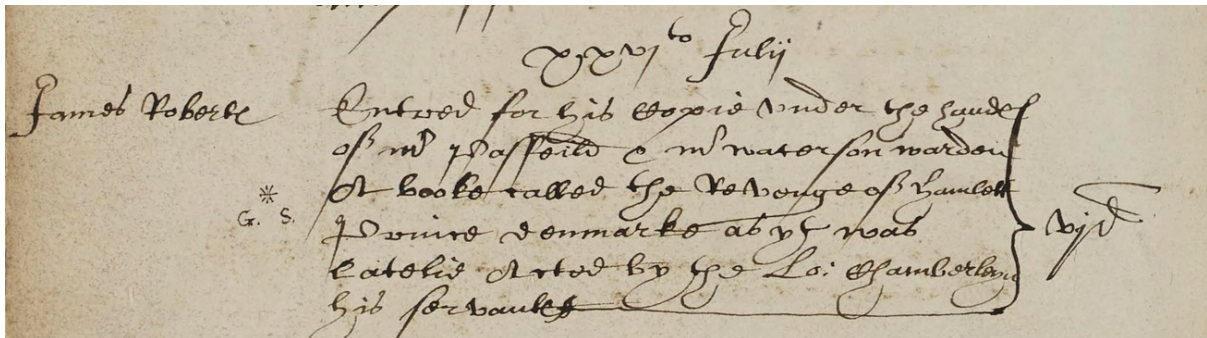 xxvjto Julij
James Robertes Entred for his Copie vnder the handes
of mr Passeild & mr waterson warden
A booke called the Revenge of Hamlett
Prince Denmarke as yt was
latelie Acted by the Lo: Chamberleyn
his servantes
vjd
* G. S.